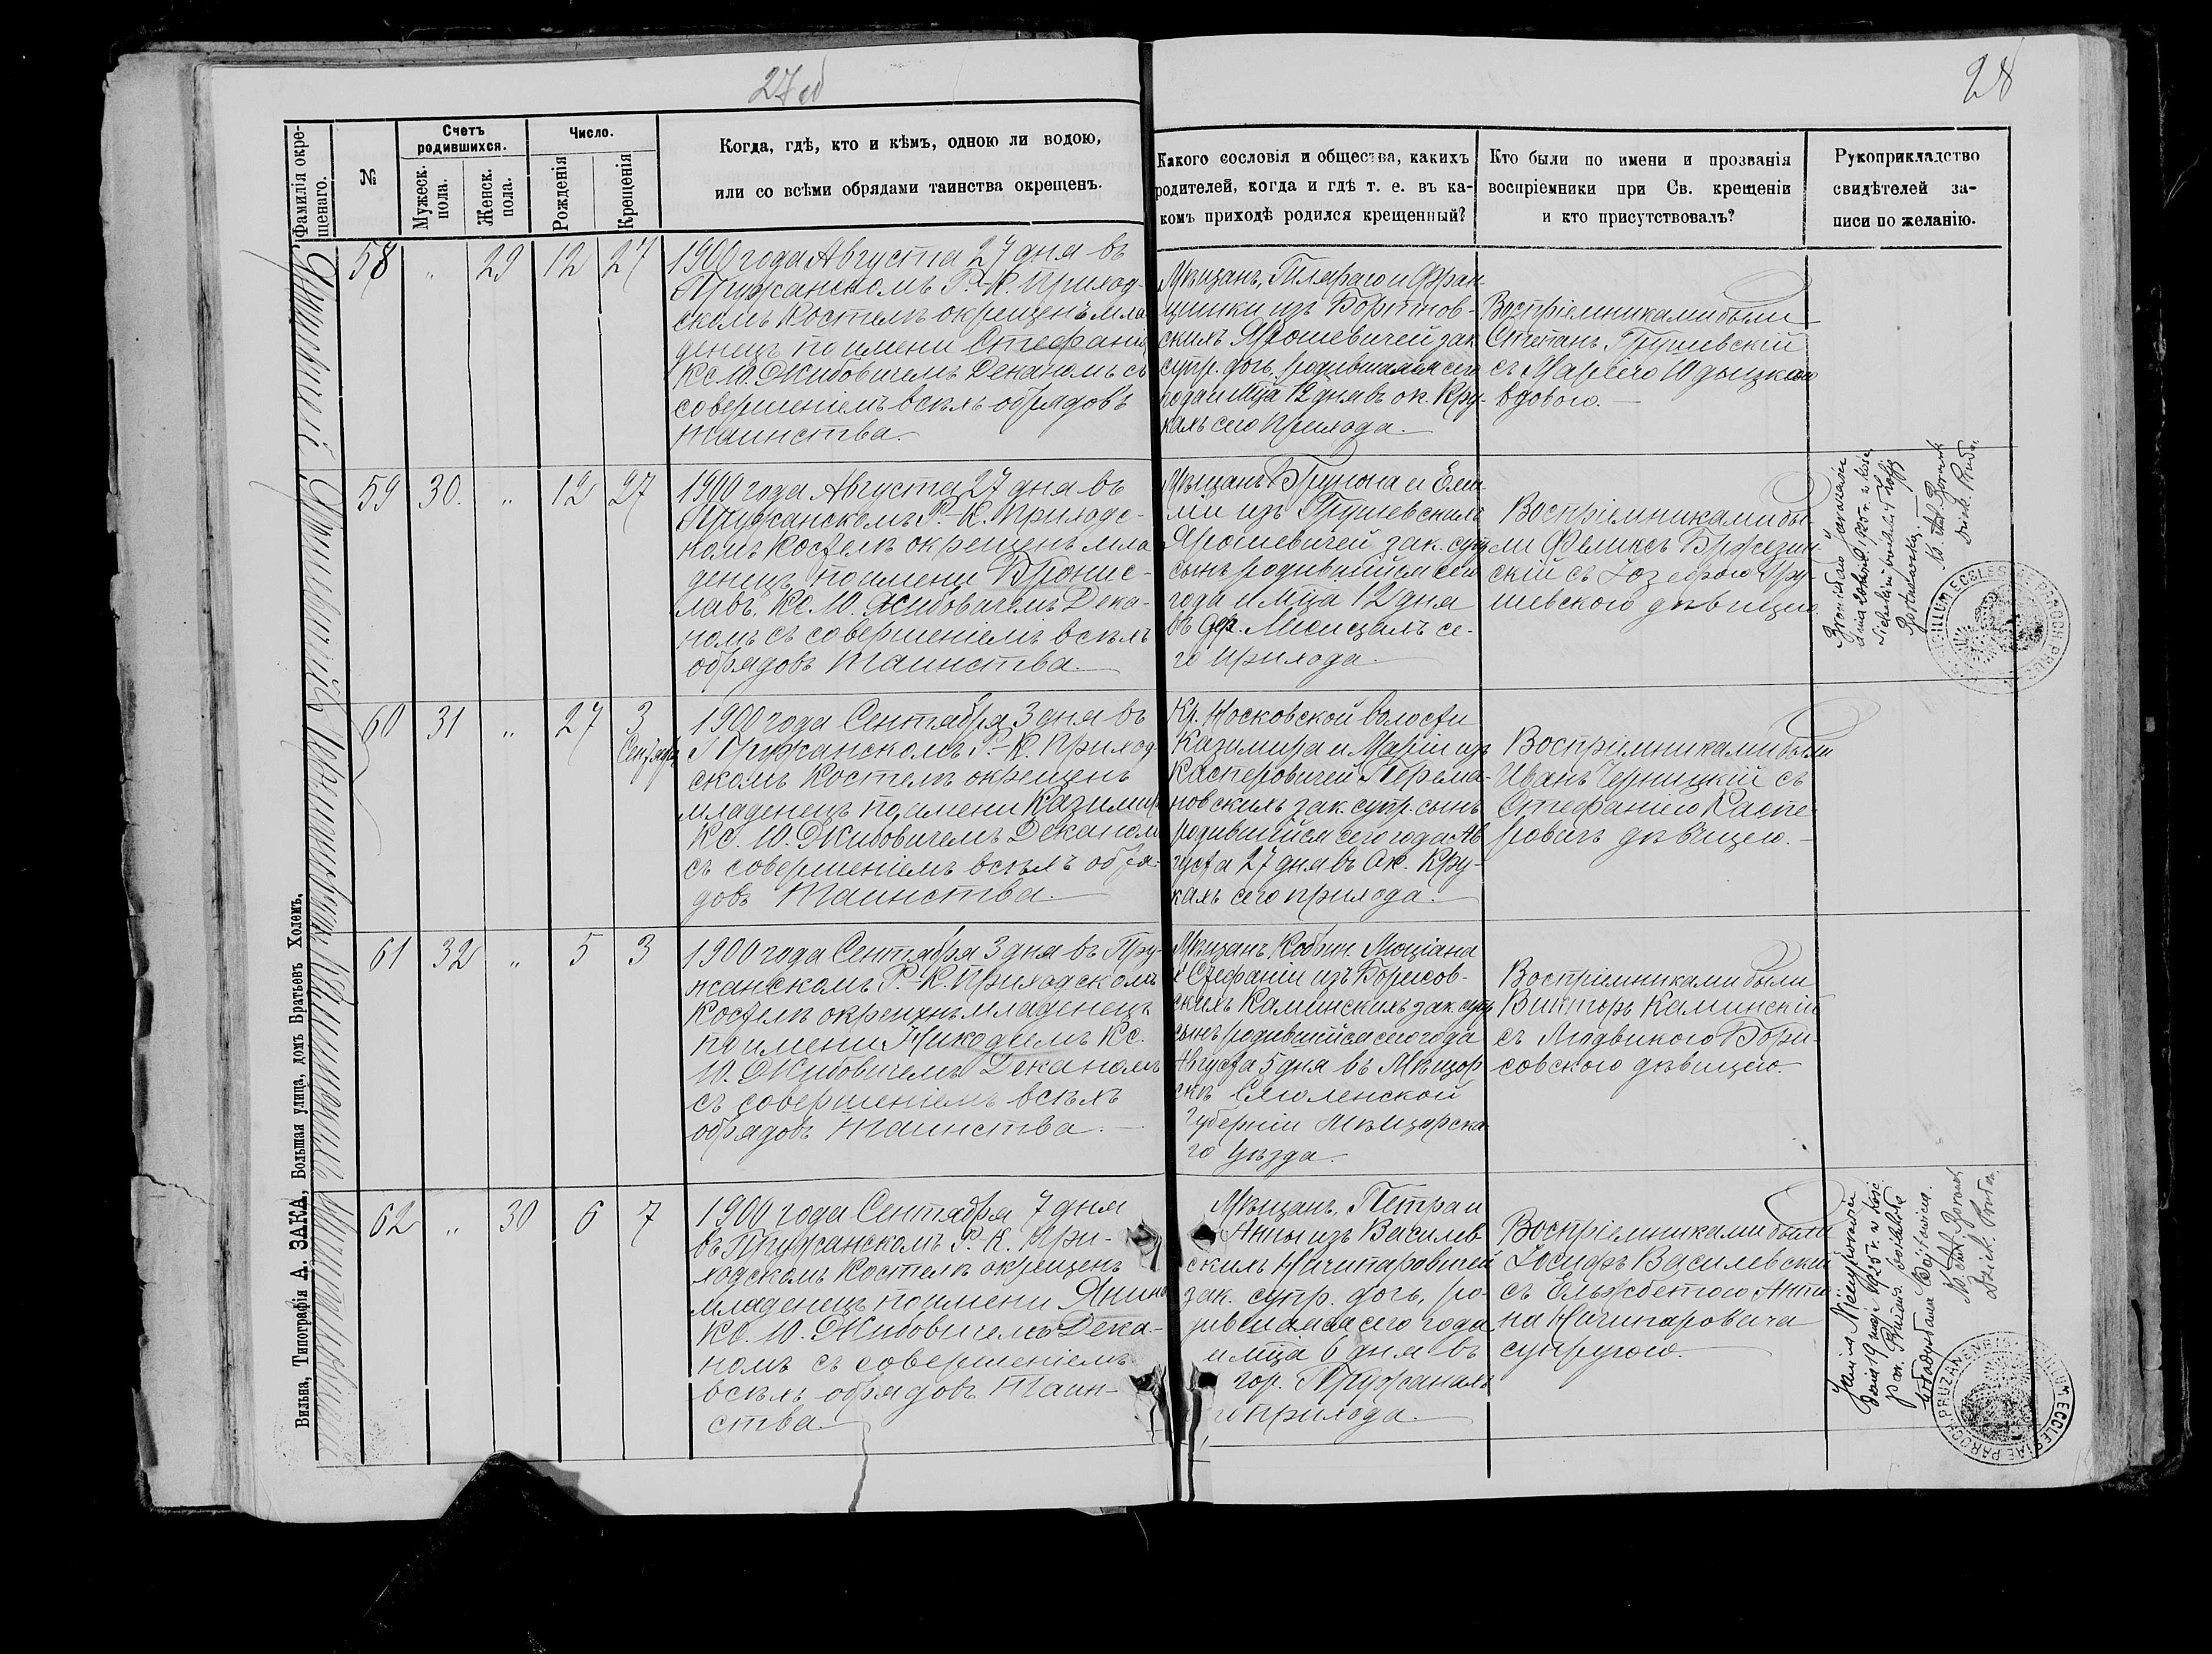 27 об
28
Фамилія окре-
щенаго.
№
Счетъ
родившихся.
Мужеск.
пола.
Женск.
пола.
Число.
Рожденія
Крещенія
Когда, гдѣ, кто и кѣмъ, одною ли водою,
или со всѣми обрядами таинства окрещенъ.
Какого сословія и общества, какихъ
родителей, когда и гдѣ т. е. въ ка-
комъ приходѣ родился крещенный?
Кто были по имени и прозванія
воспріемники при Св. крещеніи
и кто присутствовалъ?
Рукоприкладство
свидѣтелей за-
писи по желанію.
58 " 29 12 27
1900 года Августа 27 дня въ
Пружанскомъ Р.-К. Приход-
скомъ Костелѣ окрещенъ мла
денецъ по имени Стефанія
Кс. Ю. Жибовичемъ Деканомъ съ
совершеніемъ всѣхъ обрядовъ
таинства.
Мѣщанъ, Гиляраго и Фран-
цишки изъ
Ярошевичей зак.
супр. дочь, родившаяся сего
года и мца 12 дня въ ок. Кру-
кахъ сего прихода.
Воспріемниками были
Степанъ Грушевскій
съ Маріею Юдыцкою
вдовою.
59 30. " 12 27
1900 года Августа 27 дня въ
Пружанскомъ Р.-К. Приходс-
комъ Костелѣ окрещенъ мла
денецъ по имени Бронис-
лавъ. Кс. Ю. Жибовичемъ Дека-
номъ съ совершеніемъ всѣхъ
обрядовъ таинства.
Мѣщанъ Бруиона и Еми-
ліи изъ Грушевскихъ
Ярошевичей зак. супр
сынъ родившійся сего
года и мца 12 дня
въ дер. се-
го прихода.
Воспріемниками бы-
ли Феликсъ Бржезин-
скій съ Іозефою Гру-
шевскою дѣвицею.
Bronisław
dnia 1925 r. w kośc.
Ks.
Dziek. Pruż.
SIGILLUM ECCLESIAE PAROCH. PRUZANENSIS
60 31 " 27 3
Сентября
1900 года Сентября 3 дня въ
Пружанскомъ Р.-К. Приход-
скомъ Костелѣ окрещенъ
младенецъ по имени Казимиръ
Кс. Ю. Жибовичемъ Деканомъ
съ совершеніемъ всѣхъ обря-
довъ таинства.
Кр. Носковской волости
Казимира и Маріи изъ
Касперовичей
новскихъ зак. супр. сынъ
родившійся сего года Ав
густа 27 дня въ ок. Кру-
кахъ сего прихода.
Воспріемниками были
Иванъ Черницкій съ
Стефаніею Каспе-
ровичъ дѣвицею.
61 32 " 5 3
1900 года Сентября 3 дня въ Пру-
жанскомъ Р.-К. Приходскомъ
Костелѣ окрещенъ младенецъ
по имени Никодимъ Кс.
Ю. Жибовичемъ Деканомъ
съ совершеніемъ всѣхъ
обрядовъ таинства.
Мѣщанъ Кобрин. Люціана
и Стефаніи изъ Борисов-
скихъ Каминскихъ зак. супр
сынъ родившійся сего года
Августа 5 дня въ
Смоленской
губерніи
го уѣзда.
Воспріемниками были
Викторъ Каминскій
съ Людвикою Бори-
совскою дѣвицею.
62 " 30 6 7
1900 года Сентября 7 дня
въ Пружанскомъ Р.-К. При-
ходскомъ Костелѣ окрещенъ
младенецъ по имени Янина
Кс. Ю. Жибовичемъ Дека-
номъ съ совершеніемъ
всѣхъ обрядовъ таин-
ства.
Мѣщанъ, Петра и
Анны изъ Василев
скихъ Ничипаровичей
зак. супр. дочь, ро-
дившаяся сего года
и мца 6 дня въ
гор. Пружанахъ
прихода.
Воспріемниками были
Іосифъ Василевскій
съ Ельжбетою Анто
на Ничипаровича
супругою.
Janina
Dnia 19 maja 1925 r. w kośc.
par. Prużańs.
Władysława Wójtowicza.
Ks.
Dziek. Pruż.
SIGILLUM ECCLESIAE PAROCH. PRUZANENSIS
Вильна, Типографія А. ЗАКА, Большая улица, домъ Братьевъ Холемъ.